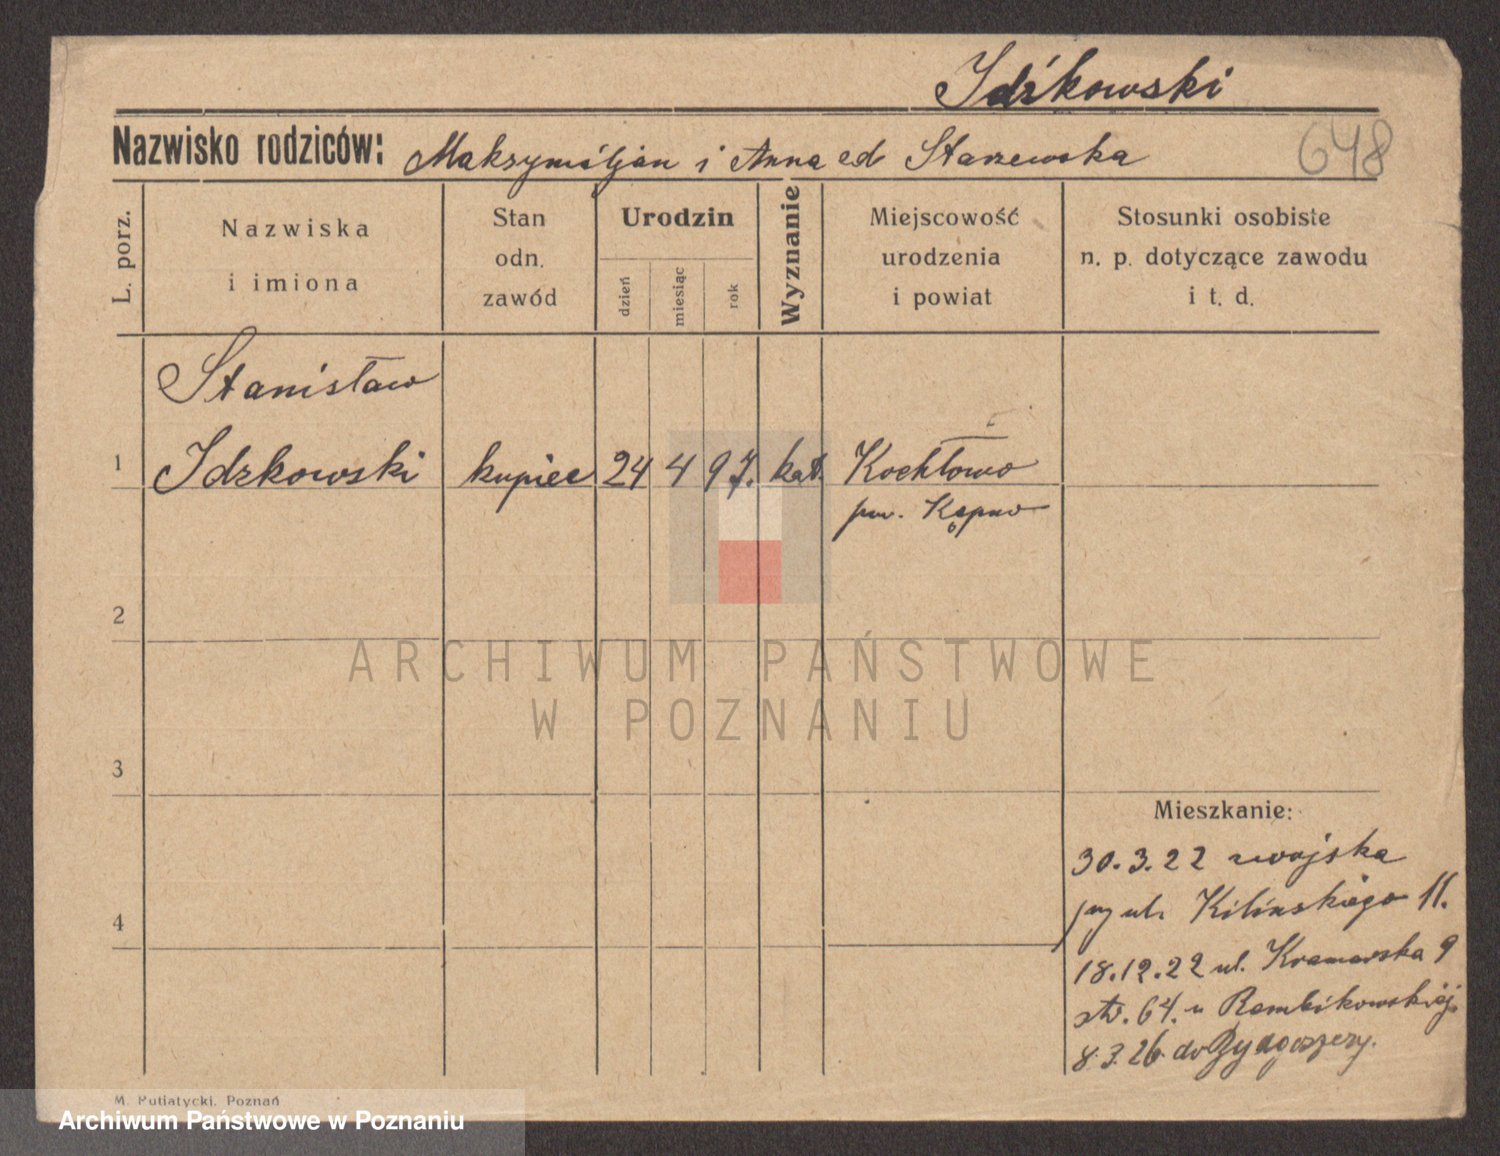 Idźkowski
Nazwisko rodziców: Maksymiljan i Anna ed Starzewska
648
L. porz.
Nazwiska
i imiona
Stan
odn.
zawód
Urodzin
dzień
miesiąc
rok
Wyznanie
Miejscowość
urodzenia
i powiat
Stosunki osobiste
n. p. dotyczące zawodu
i t. d.
Stanisław
1 Idzkowski kupiec 24 4 97. kat. Kochłowo
pow. Kępno
2
ARCHIWUM PAŃSTWOWE
W POZNANIU
3
Mieszkanie:
30.3.22 z wojska
przy ul. Kilińskiego 11.
4
18.12.22 ul. Kramarska 9
str. 64. u
8.3.26 do Bydgoszczy.
M. Putiatycki, Poznań
Archiwum Państwowe w Poznaniu